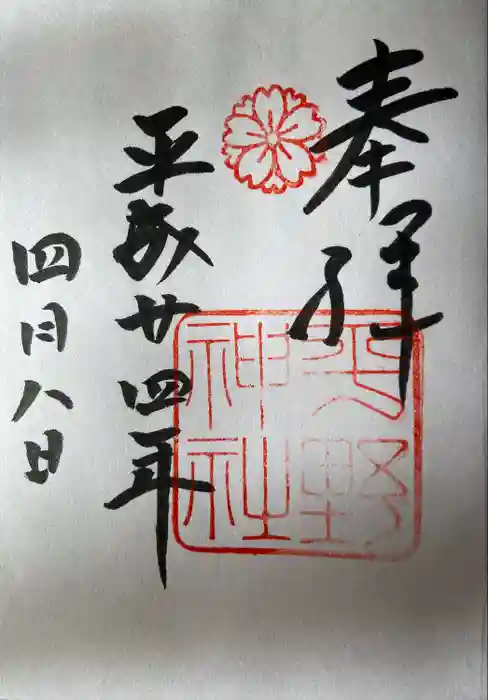 奉拝
平野
神社
平成廿四年
四月八日